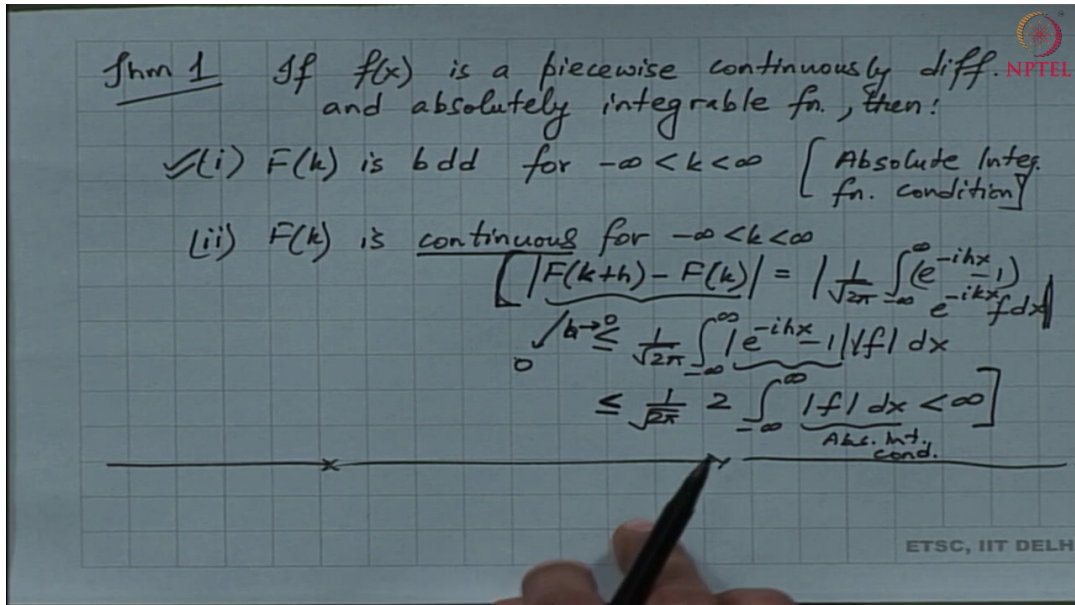 Thm 1 If f(x) is a piecewise continuously diff.
NPTEL
and absolutely integrable fn., then:
(i) F(k) is bdd for -∞ < k < ∞ [Absolute Integ.
fn. condition]
(ii) F(k) is continuous for -∞ < k < ∞
[|F(k+h) - F(k)| = |1/√2π ∫_{-∞}^{∞} (e^{-ihx} - 1)
e^{-ikx} f dx|
0 ↙ h→0 ≤ 1/√2π ∫_{-∞}^{∞} |e^{-ihx} - 1| |f| dx
≤ 1/√2π 2 ∫_{-∞}^{∞} |f| dx < ∞]
Abs. Int.
cond.
ETSC, IIT DELH